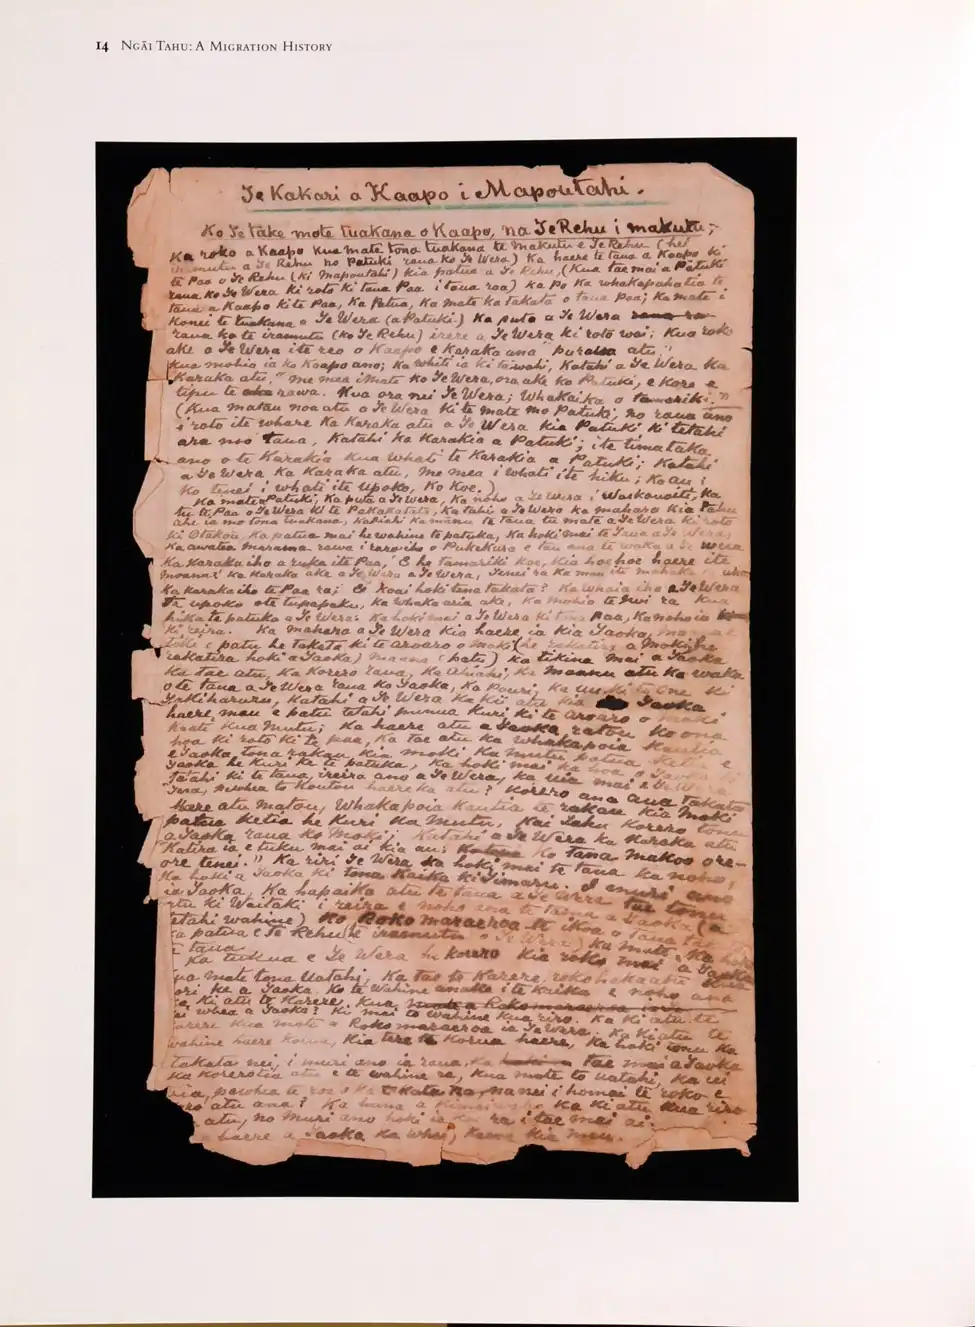 14 NGĀI TAHU: A MIGRATION HISTORY
Te Kakari a Kaapo i Mapoutahi.
Ko Te take mote tuakana o Kaapo, na Te Rehu i makutu;
Ka roko a Kaapo kua mate tona tuakana te makutu e Te Rehu (hei
iramutu a Te Rehu no Patuki raua ko Te Wera) Ka haere te taua a Kaapo ki
te Paa o Te Rehu (ki Mapoutahi) kia patua a Te Rehu, (Kua tae mai a Patuki
raua ko Te Wera ki roto ki taua Paa i taua raa) ka po ka whakapahatia te
taua a Kaapo ki te Paa, Ka patua, Ka mate ka takata o taua paa; Ka mate i
Konei te tuakana o Te Wera (a Patuki.) Ka puta a Te Wera
raua ko te iramutu (ko Te Rehu) irere a Te Wera ki roto wai; Kua roko
ake o Te Wera ite reo o Kaapo e Karaka ana
Kua mohio ia ko Kaapo ano; Ka whiti ia ki tawahi, Katahi a Te Wera ka
Karaka atu, "me mea i mate ko Te Wera, ora ake ko Patuki, e kore e
tipu te rawa. Kua ora nei Te Wera; Whakaika o tamariki."
(Kua matau noa atu a Te Wera ki te mate mo Patuki, no raua ano
i roto ite whare Ka Karaka atu a Te Wera kia Patuki ki tetahi
ara mo taua, Katahi ka Karakia a Patuki; ite timataka
ano o te Karakia kua whati te Karakia a Patuki; Katahi
a Te Wera ka Karaka atu, me mea i whati ite hiku; Ko au;
Ko tenei i whati ite upoko, Ko Koe.)
Ka mate a Patuki, Ka puta a Te Wera, Ka noho a Te Wera i Waikouaiti, Ka
tu te Paa o Te Wera ki te Ka tahi a Te Wera ka mahara kia
ahu ia mo tona tuakana, te taua tu mate a Te Wera ki roto
ki Otakou, Ka patua mai he wahine te patuka, Ka hoki mai te Taua a Te Wera,
Ka awatea marama rawa i raro iho o Pukekura e tau ana te waka a Te Wera
Ka Karaka iho a ruka ite Paa, E he tamariki koe, Kia hoehoe haere ite
moana! Ka Karaka ake a Te Wera
Ka karaka iho te Paa ra; E Koai hoki tena takata? Ka whaia iho a Te Wera
Te upoko ote tupapaku, Ka whaka aria ake, Ka mohio te Iwi ra Kua
hika te patuka a Te Wera. Ka hoki mai a Te Wera ki tona Paa, Ka noho ia
ki reira. Ka mahara a Te Wera kia haere ia kia Taoka,
patu he Takata ki te aroaro o moki (he rakatira a moki, he
rakatira hoki a Taoka) (patu) ka tikina mai a Taoka
Ka tae atu, Ka Korero raua, Ka Ahiahi, Ka maanu atu ka waka
o te taua a Te Wera raua ko Taoka, Ka pouri, Ka u ki te One ki
Katahi a Te Wera ka kii atu kia Taoka
haere mau e patu tetahi punua kuri ki te aroaro o moki
Kaati kua mutu; Ka haere atu a Taoka ratou ko ona
hoa ki roto ki te paa, Ka tae atu ka whakapoia
e Taoka, tona rakau kia moki Ka mutu, patua ketia e
Taoka he Kuri ke te patuka, Ka hoki mai ka hoa o Taoka
Tatahi ki te taua, ireira ano a Te Wera, ka uia mai e Te Wera
pewhea to Koutou haereka atu? Korero ana aua Takata
Haere atu matou, Whakapoia te rakau kia Moki
patua ketia he Kuri Ka mutu, Kai Taku Korero tonu
a Taoka raua ko Moki; Katahi a Te Wera Ka Karaka atu
Katira ia e tuku mai ai kia au; Ko tana makoo ore-
ore tenei." Ka riri Te Wera ka hoki mai te Taua ka noho;
Ka hoki a Taoka ki tona Kaika ki Timaru. I muri ano
ia Taoka, Ka hapaika atu te taua a Te Wera tae tonu
atu ki Waitaki i reira e noho ana te Tama a Taoka (a
tetahi wahine) Ko Rokomaraeroa te ikoa o taua
Ka patua e Te Rehu (he iramutu o Te Wera) Ka mate.
e taua
Ka tukua e Te Wera he Korero Kia roko mai a Taoka
kua mate tona Uatahi, Ka tae te Karere, rokohekaatu
ke a Taoka. Ko te Wahine anake i te Kaika e noho ana
Ka ki atu te Karere. Kua
Kai whea a Taoka? Ki mai te Wahine Kua riro. Ka ki atu te
Karere Kua mate a Rokomaraeroa ia Te Wera. Ka ki atu te
Wahine haere Korua, Kia tere te Korua haere, Ka hoki tonu Ka
takata nei, i muri ano ia raua, Ka tae mai a Taoka
Ka Korerotia atu e te wahine ra, Kua mate to uatahi, Ka ui
pewhea te roa nanei i homai te roko e
atu ana? Ka ki atu Kua riro
atu, no muri ano hoki ia ra i tae mai ai.
haere a Taoka Ka whai,